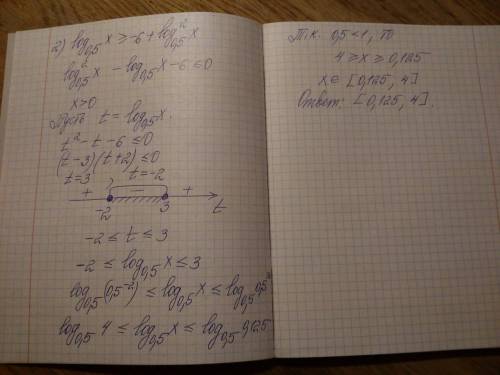 2) log₀,₅ x ≥ -6 + log²₀,₅ x
log²₀,₅ x - log₀,₅ x - 6 ≤ 0
x > 0
Пусть t = log₀,₅ x.
t² - t - 6 ≤ 0
(t - 3)(t + 2) ≤ 0
t = 3 t = -2
+ - +
-2 3 t
-2 ≤ t ≤ 3
-2 ≤ log₀,₅ x ≤ 3
log₀,₅ (0,5⁻²) ≤ log₀,₅ x ≤ log₀,₅ 0,5³
log₀,₅ 4 ≤ log₀,₅ x ≤ log₀,₅ 0,125
Т.к. 0,5 < 1, то
4 ≥ x ≥ 0,125
x ∈ [0,125, 4]
Ответ: [0,125, 4].